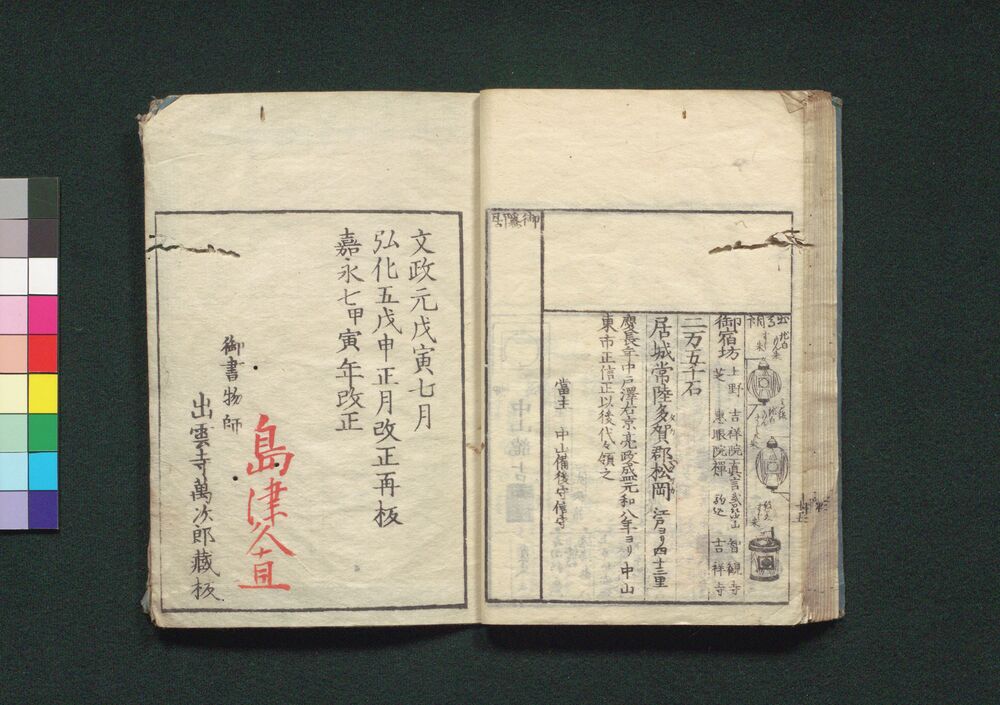 御隠居
御宿坊
上野 吉祥院
真言
智観寺
芝 惠眼院
禅
吉祥寺
二万五千石
居城常陸多賀郡松岡 江戸ヨリ四十三里
慶長年中戸澤右京亮政盛元和八年ヨリ中山
東市正信正以後代々領之
當主 中山備後守信守
文政元戊寅七月
弘化五戊申正月改正再板
嘉永七甲寅年改正
御書物師
出雲寺萬次郎藏板
島津久直